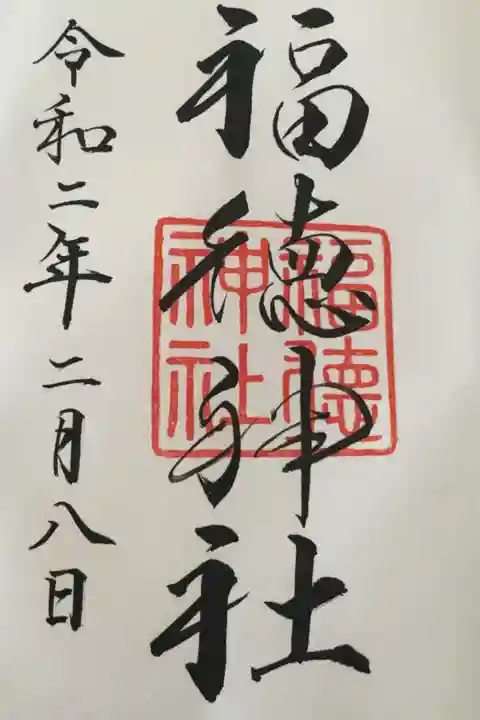 福徳神社
福徳
神社
令和二年二月八日